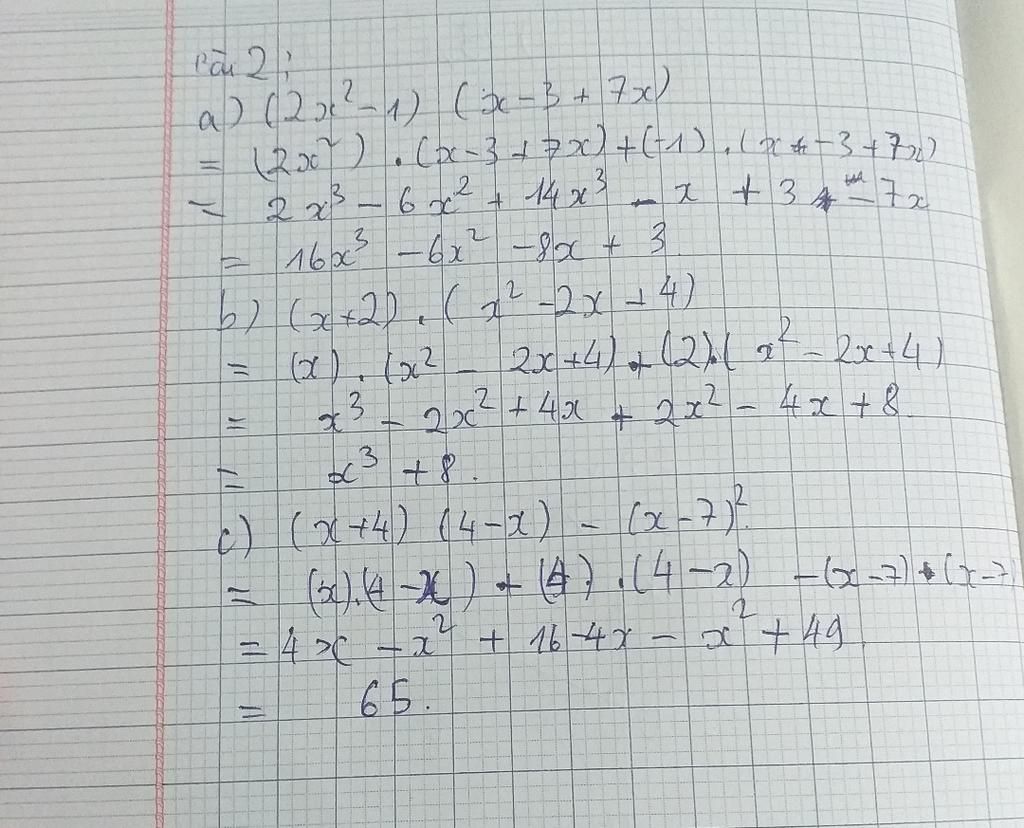 Bài 2:
a) (2x² - 1) (x - 3 + 7x)
= (2x²) . (x - 3 + 7x) + (-1) . (x - 3 + 7x)
= 2x³ - 6x² + 14x³ - x + 3 - 7x
= 16x³ - 6x² - 8x + 3
b) (x+2) . (x² - 2x + 4)
= (x) . (x² - 2x + 4) + (2).( x² - 2x + 4)
= x³ - 2x² + 4x + 2x² - 4x + 8.
= x³ + 8.
c) (x+4) (4-x) - (x-7)²
= (x).(4-x) + (4) . (4-x) - (x-7) . (x-7)
= 4x - x² + 16 - 4x - x² + 49
= 65.